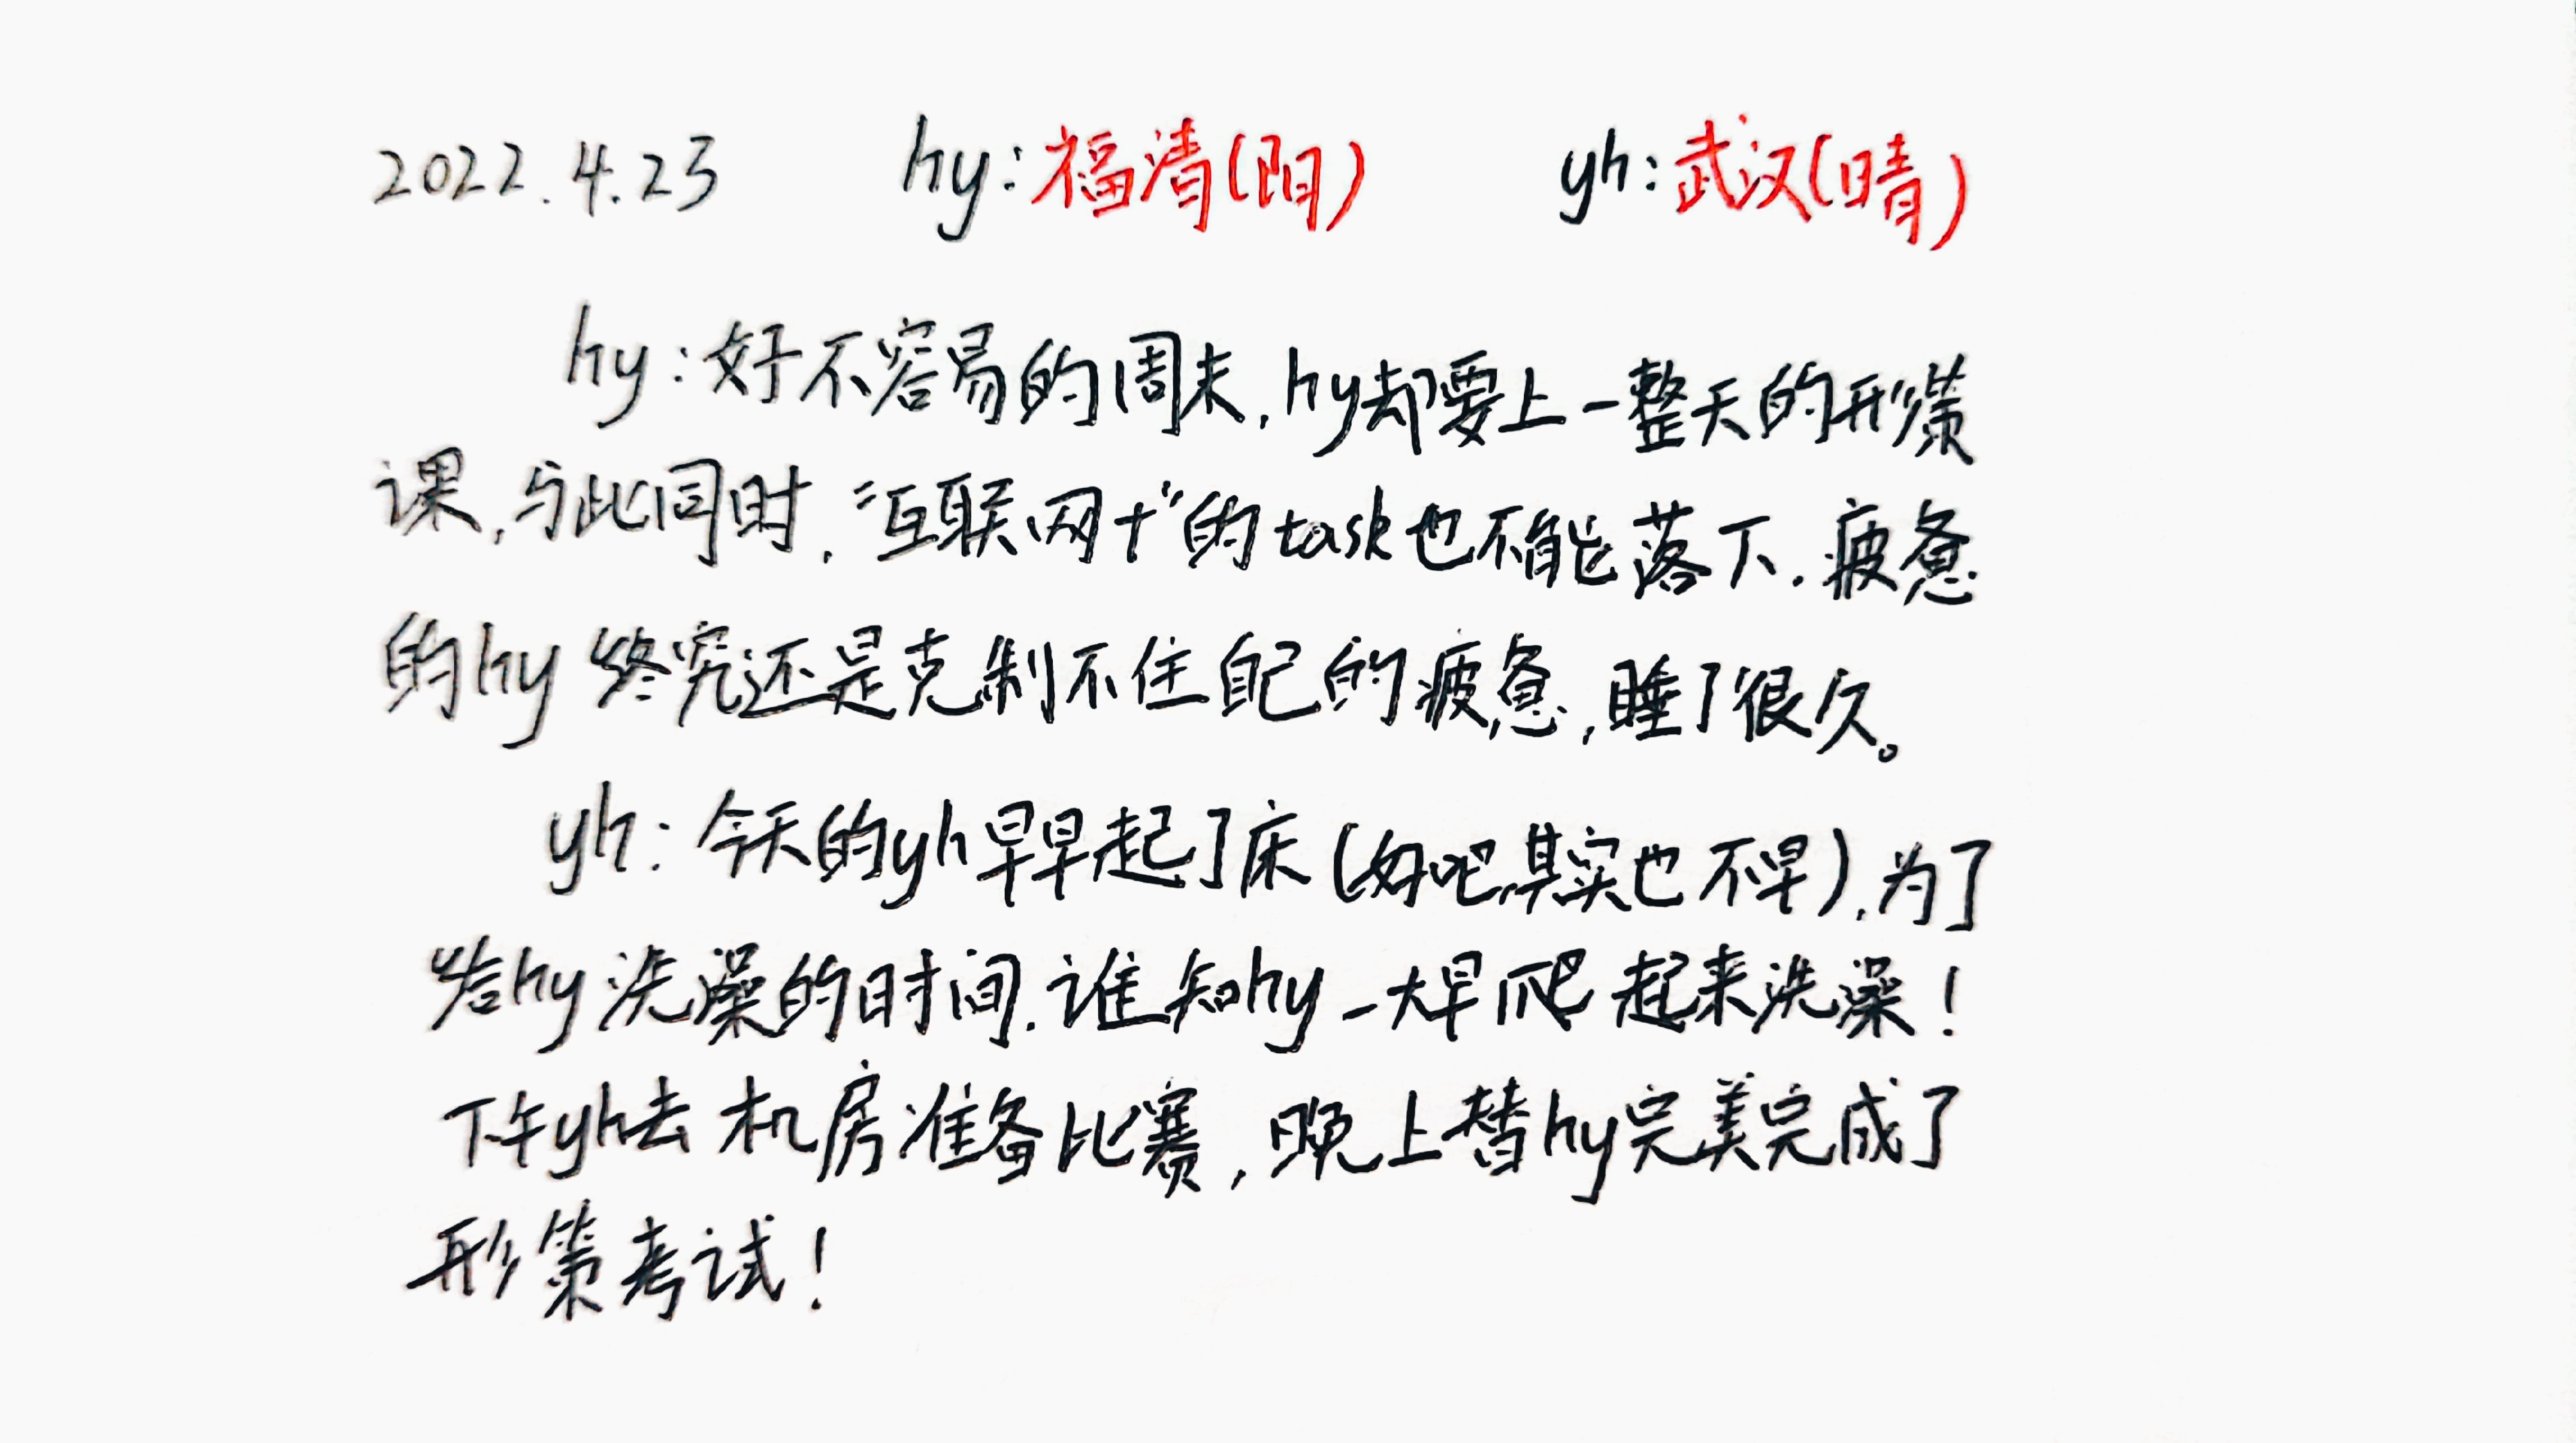 2022.4.23 hy:福清(阳) yh:武汉(晴)
hy:好不容易的周末,hy却要上一整天的形策
课,与此同时,“互联网+”的task也不能落下.疲惫
的hy终究还是克制不住自己的疲惫,睡了很久。
yh:今天的yh早早起了床(好吧,其实也不早),为了
给hy洗澡的时间.谁知hy一大早爬起来洗澡!
下午yh去机房准备比赛,晚上替hy完美完成了
形策考试!